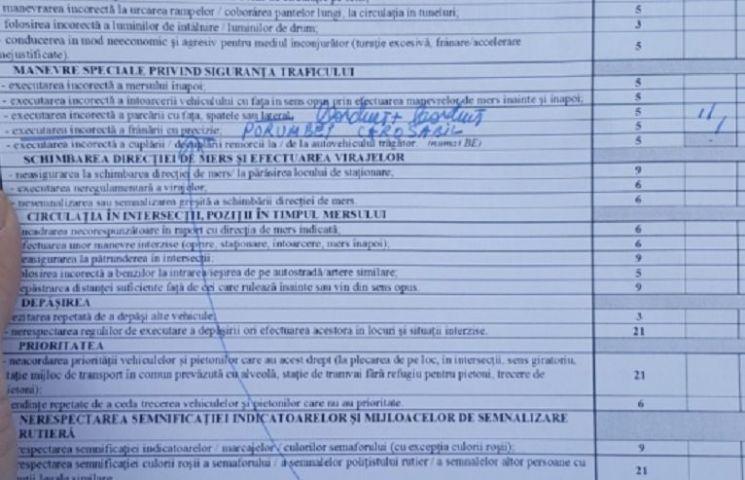 manevrarea incorectă la urcarea rampelor / coborârea pantelor lungi, la circulația în tuneluri; 5
folosirea incorectă a luminilor de întâlnire / luminilor de drum; 3
- conducerea în mod neeconomic și agresiv pentru mediul înconjurător (turație excesivă, frânare/accelerare 5
nejustificate)
MANEVRE SPECIALE PRIVIND SIGURANȚA TRAFICULUI
- executarea incorectă a mersului înapoi; 5
- executarea incorectă a întoarcerii vehiculului cu fața în sens opus prin efectuarea manevrelor de mers înainte și înapoi; 5
- executarea incorectă a parcării cu fața, spatele sau lateral; 5
- executarea incorectă a frânării cu precizie; PORUMBEI 5
- executarea incorectă a cuplării / decuplării remorcii la / de la autovehiculul trăgător. (numai BE) 5
SCHIMBAREA DIRECȚIEI DE MERS ȘI EFECTUAREA VIRAJELOR
- neasigurarea la schimbarea direcției de mers/ la părăsirea locului de staționare; 9
- executarea neregulamentară a virajelor; 6
- nesemnalizarea sau semnalizarea greșită a schimbării direcției de mers. 6
CIRCULAȚIA ÎN INTERSECȚII, POZIȚII ÎN TIMPUL MERSULUI
ncadrarea necorespunzătoare în raport cu direcția de mers indicată; 6
fectuarea unor manevre interzise (oprire, staționare, întoarcere, mers înapoi); 6
easigurarea la pătrunderea în intersecții; 9
olosirea incorectă a benzilor la intrarea/ieșirea de pe autostradă/artere similare; 5
epăstrarea distanței suficiente față de cei care rulează înainte sau vin din sens opus. 9
DEPĂȘIREA
ezitarea repetată de a depăși alte vehicule; 3
- nerespectarea regulilor de executare a depășirii ori efectuarea acestora în locuri și situații interzise. 21
PRIORITATEA
- neacordarea priorității vehiculelor și pietonilor care au acest drept (la plecarea de pe loc, în intersecții, sens giratoriu,
tație mijloc de transport în comun prevăzută cu alveolă, stație de tramvai fără refugiu pentru pietoni, trecere de 21
ietoni);
endințe repetate de a ceda trecerea vehiculelor și pietonilor care nu au prioritate. 6
NERESPECTAREA SEMNIFICAȚIEI INDICATOARELOR ȘI MIJLOACELOR DE SEMNALIZARE
RUTIERĂ
espectarea semnificației indicatoarelor / marcajelor / culorilor semaforului (cu excepția culorii roșii); 9
espectarea semnificației culorii roșii a semaforului / a semnalelor polițistului rutier / a semnalelor altor persoane cu 21